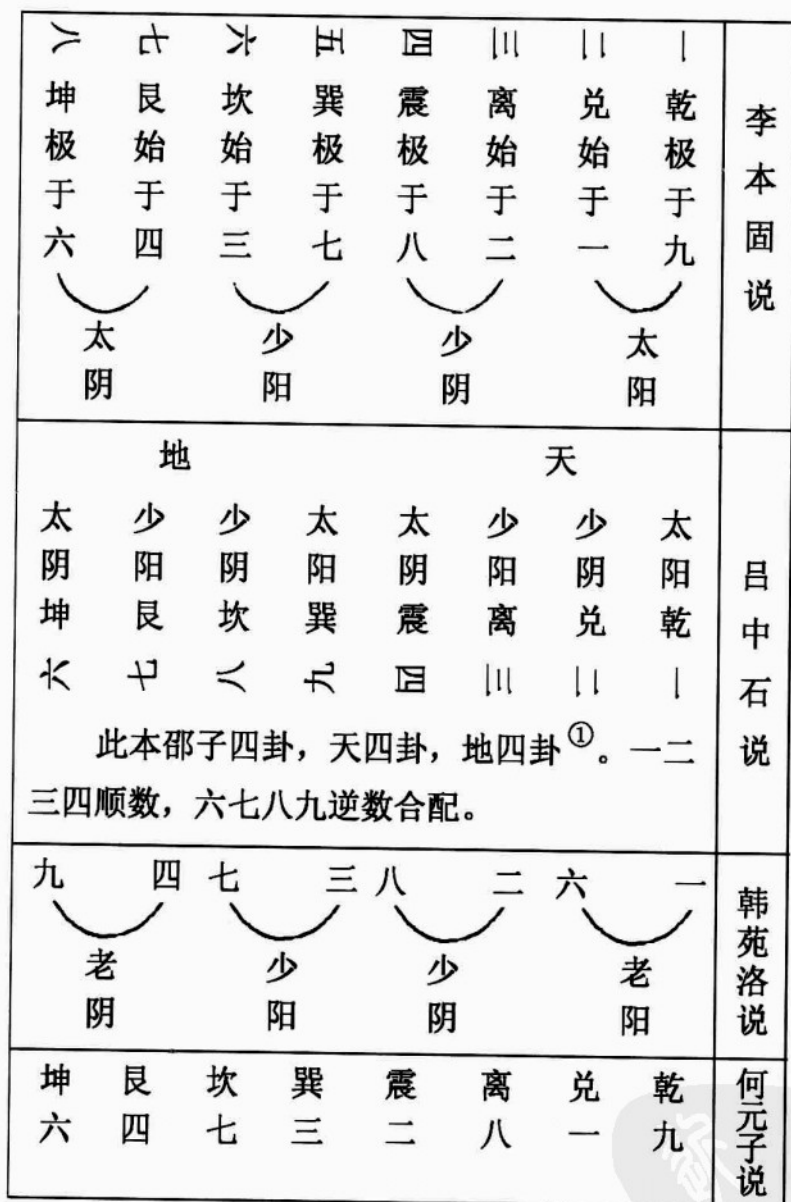 李本固说
一乾极于九
二兑始于一
太阳
三离始于二
四震极于八
少阴
五巽极于七
六坎始于三
少阳
七艮始于四
八坤极于六
太阴
吕中石说
天
太阳乾一
少阴兑二
少阳离三
太阴震四
地
太阳巽九
少阴坎八
少阳艮七
太阴坤六
此本邵子四卦，天四卦，地四卦①。一二
三四顺数，六七八九逆数合配。
韩苑洛说
一 六
老阳
二 八
少阴
三 七
少阳
四 九
老阴
何元子说
乾九
兑一
离八
震二
巽三
坎七
艮四
坤六